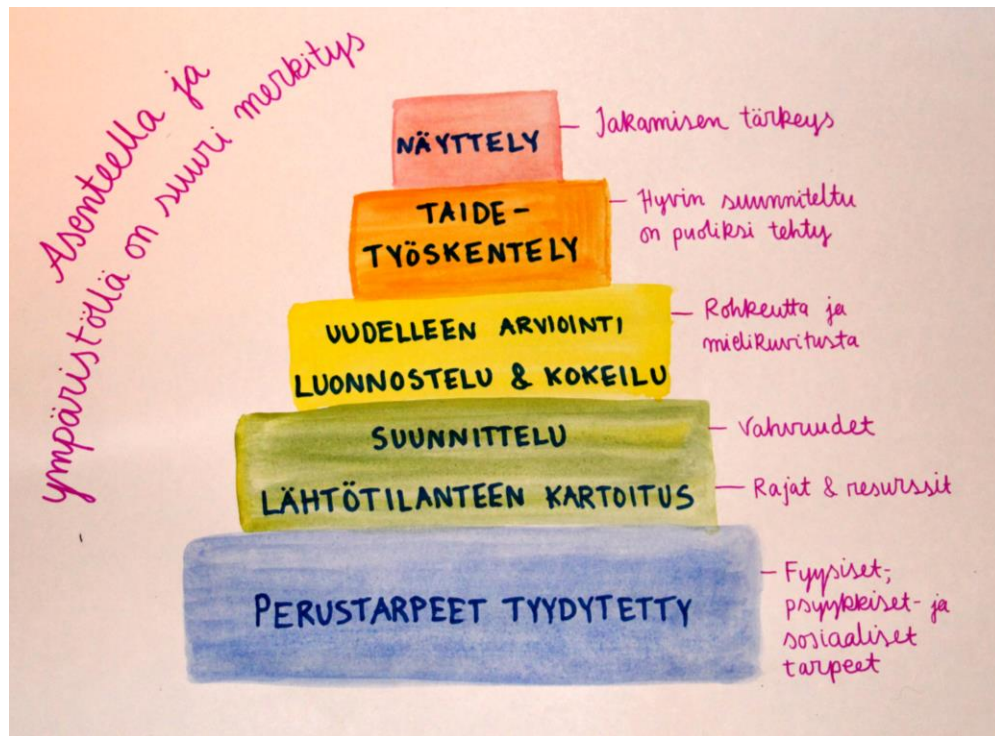 Asenteella ja
ympäristöllä on suuri merkitys
NÄYTTELY
Jakamisen tärkeys
TAIDE-
TYÖSKENTELY
Hyvin suunniteltu
on puoliksi tehty
UUDELLEEN ARVIOINTI
LUONNOSTELU & KOKEILU
Rohkeutta ja
mielikuvitusta
SUUNNITTELU
LÄHTÖTILANTEEN KARTOITUS
Vahvuudet
Rajat & resurssit
PERUSTARPEET TYYDYTETTY
Fyysiset-,
psyykkiset- ja
sosiaaliset
tarpeet